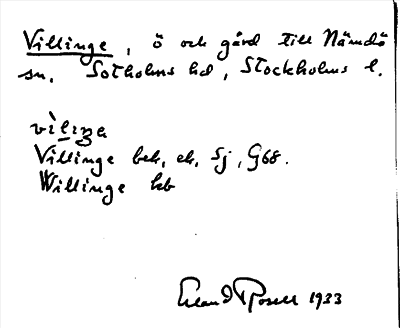 Villinge, ö och gård till Nämdö
sn. Sotholms hd, Stockholms l.
vìliŋa
Villinge bek, ek, Sj, G68.
Willinge kb
Erland Rosell 1933